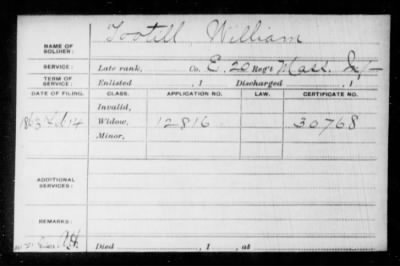 Tootill William
NAME OF SOLDIER:
SERVICE: Late rank, Co. E. 20 Reg't Mass. Inf
TERM OF SERVICE: Enlisted , 1 Discharged , 1
DATE OF FILING. CLASS. APPLICATION NO. LAW. CERTIFICATE NO.
Invalid,
1863 14 Widow, 12816 30768
Minor,
ADDITIONAL SERVICES:
REMARKS:
Died , 1 , at